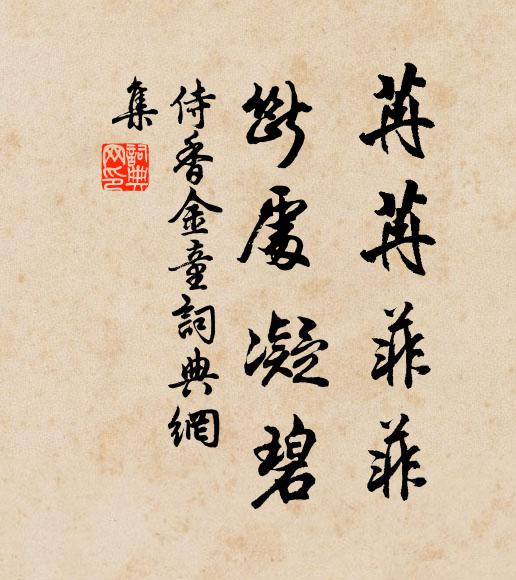 苒苒菲菲
斷處凝碧
侍香金童詞典網
集
詞典
網印